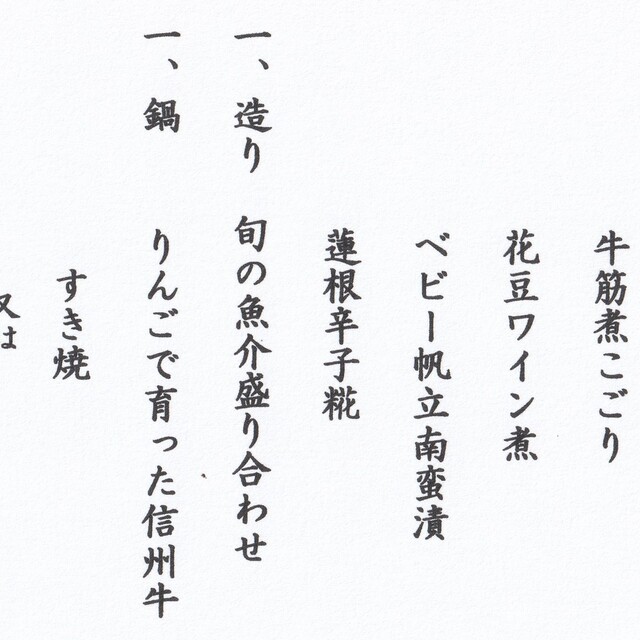 牛筋煮こごり
花豆ワイン煮
ベビー帆立南蛮漬
蓮根辛子糀
一、造り 旬の魚介盛り合わせ
一、鍋 りんごで育った信州牛
すき焼
又は